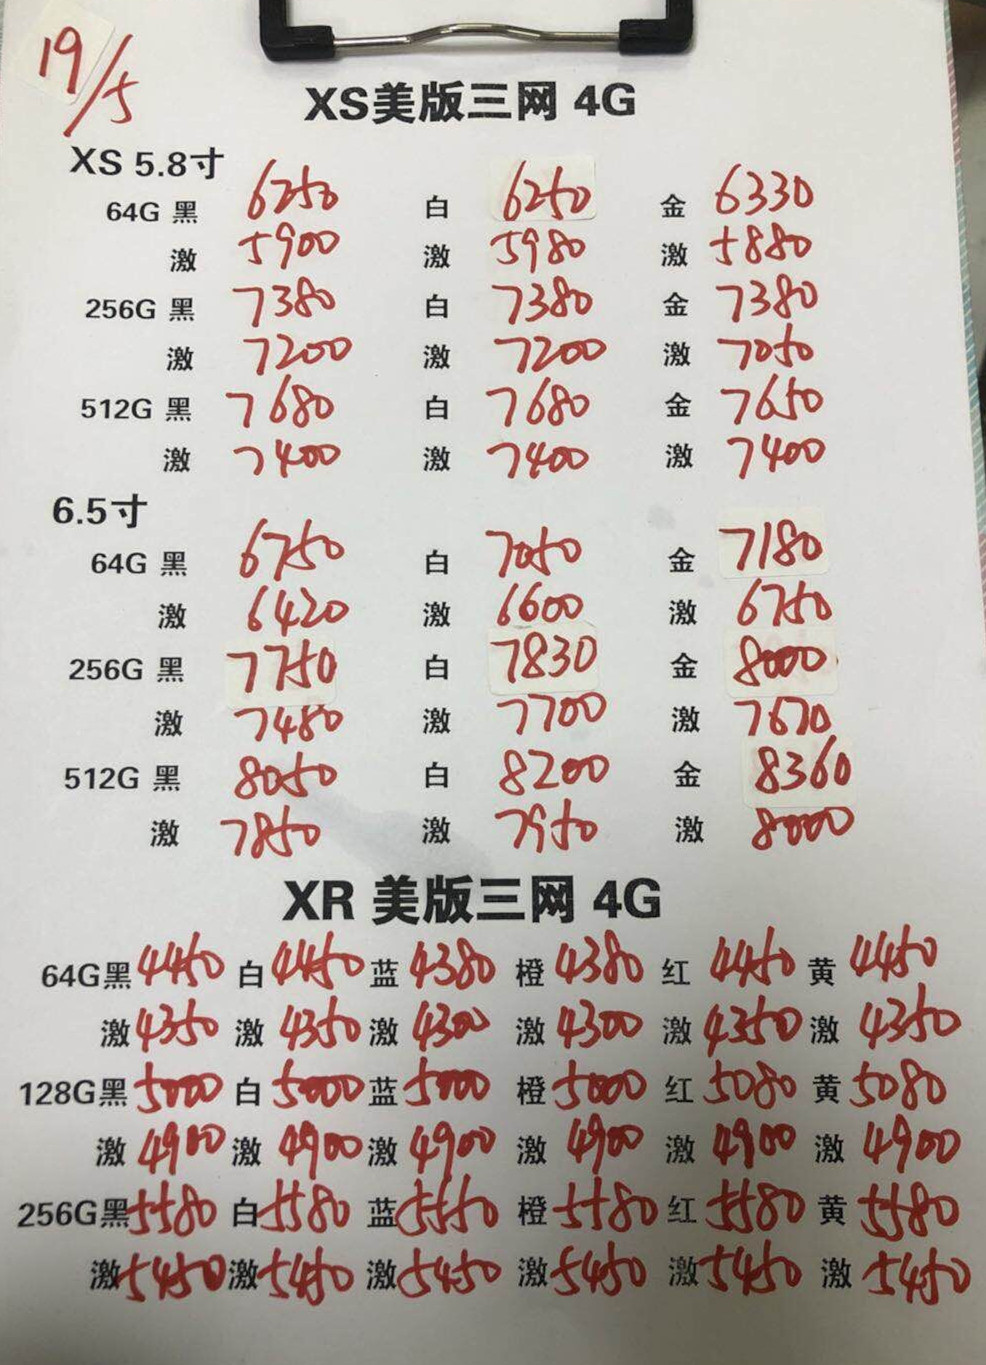 19/5
XS美版三网 4G
XS 5.8寸
64G 黑 6250 白 6250 金 6330
激 5900 激 5980 激 5880
256G 黑 7380 白 7380 金 7380
激 7200 激 7200 激 7050
512G 黑 7680 白 7680 金 7650
激 7400 激 7400 激 7400
6.5寸
64G 黑 6750 白 7050 金 7180
激 6420 激 6600 激 6750
256G 黑 7750 白 7830 金 8000
激 7480 激 7700 激 7670
512G 黑 8050 白 8200 金 8360
激 7850 激 7950 激 8000
XR 美版三网 4G
64G黑 4450 白 4450 蓝 4380 橙 4380 红 4450 黄 4450
激 4350 激 4350 激 4300 激 4300 激 4350 激 4350
128G黑 5000 白 5000 蓝 5000 橙 5000 红 5080 黄 5080
激 4900 激 4900 激 4900 激 4900 激 4900 激 4900
256G黑 5580 白 5580 蓝 5550 橙 5580 红 5580 黄 5580
激 5450 激 5450 激 5450 激 5450 激 5450 激 5450